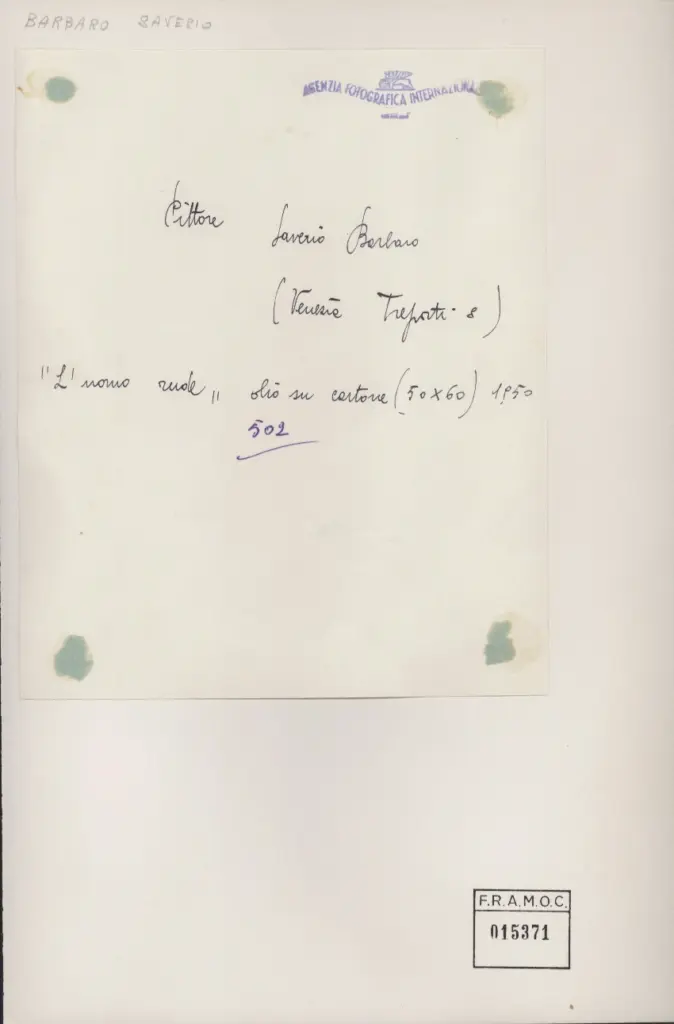 BARBARO SAVERIO
AGENZIA FOTOGRAFICA INTERNAZIONALE
Pittore Saverio Barbaro
(Venezia Treporti - 8)
"L'uomo rude" olio su cartone (50x60) 1950
502
F.R.A.M.O.C.
015371